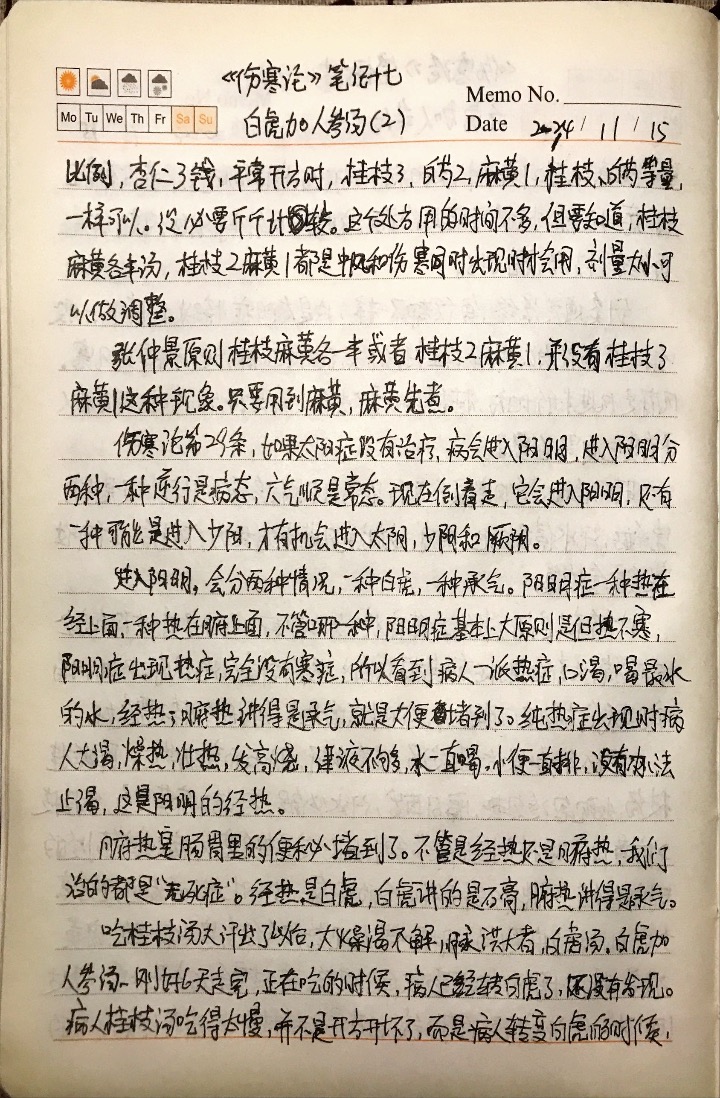 《伤寒论》笔记十七
白虎加人参汤(2)
Memo No.
Mo Tu We Th Fr Sa Su
Date 2024/11/15
比例，杏仁3钱，平常开方时，桂枝3，白芍2，麻黄1，桂枝、白芍等量，
一样可以。没必要斤斤计较。这个处方用的时间不多，但要知道，桂枝
麻黄各半汤，桂枝2麻黄1都是中风和伤寒同时出现时才会用，剂量大小可
以做调整。
张仲景原则桂枝麻黄各一半或者桂枝2麻黄1，并没有桂枝3
麻黄1这种现象。只要用到麻黄，麻黄先煮。
伤寒论第29条，如果太阳症没有治疗，病会进入阳明，进入阳明分
两种，一种逆行是病态，六气顺是常态。现在倒着走，它会进入阳明，还有
一种可能是进入少阳，才有机会进入太阴，少阴和厥阴。
进入阳明。会分两种情况，一种白虎，一种承气。阳明症一种热在
经上面，一种热在腑上面，不管哪一种，阳明症基本上大原则是但热不寒，
阳明症出现热症，完全没有寒症，所以看到病人一派热症，口渴，喝最冰
的水，经热；腑热讲得是承气，就是大便堵到了。纯热症出现时病
人大渴，燥热，壮热，发高烧，津液不够，水一直喝。小便一直排，没有办法
止渴，这是阳明的经热。
腑热是肠胃里的便秘堵到了。不管是经热还是腑热，我们
治的都是“无死症”。经热是白虎，白虎讲的是石膏，腑热讲得是承气。
吃桂枝汤大汗出了以后，大燥渴不解，脉洪大者，白虎汤。白虎加
人参汤-刚好6天走完，正在吃的时候，病人已经转白虎了，还没有发现。
病人桂枝汤吃得太慢，并不是开方开坏了，而是病人转变白虎的时候，